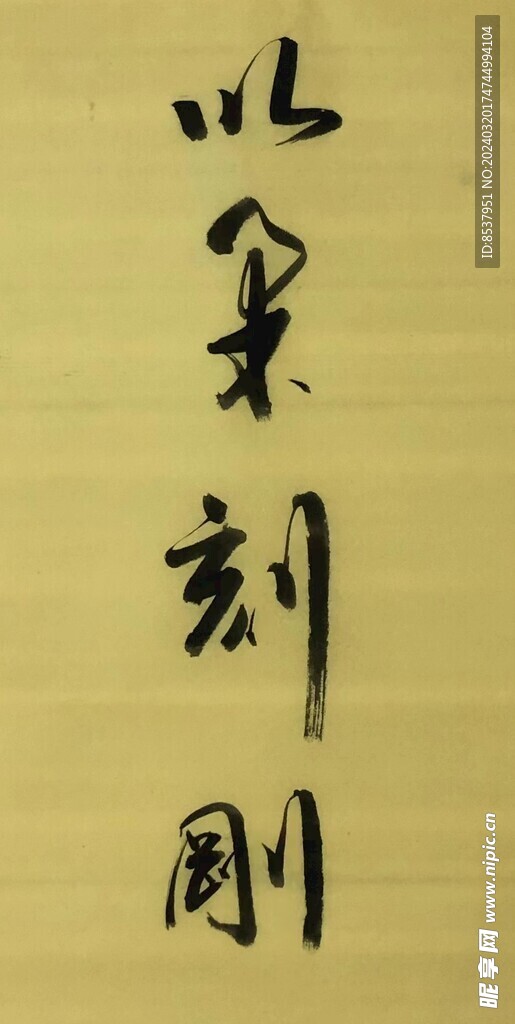 以柔刻剛
ID:8537951 NO:20240320174744994104
昵享网 www.nipic.cn